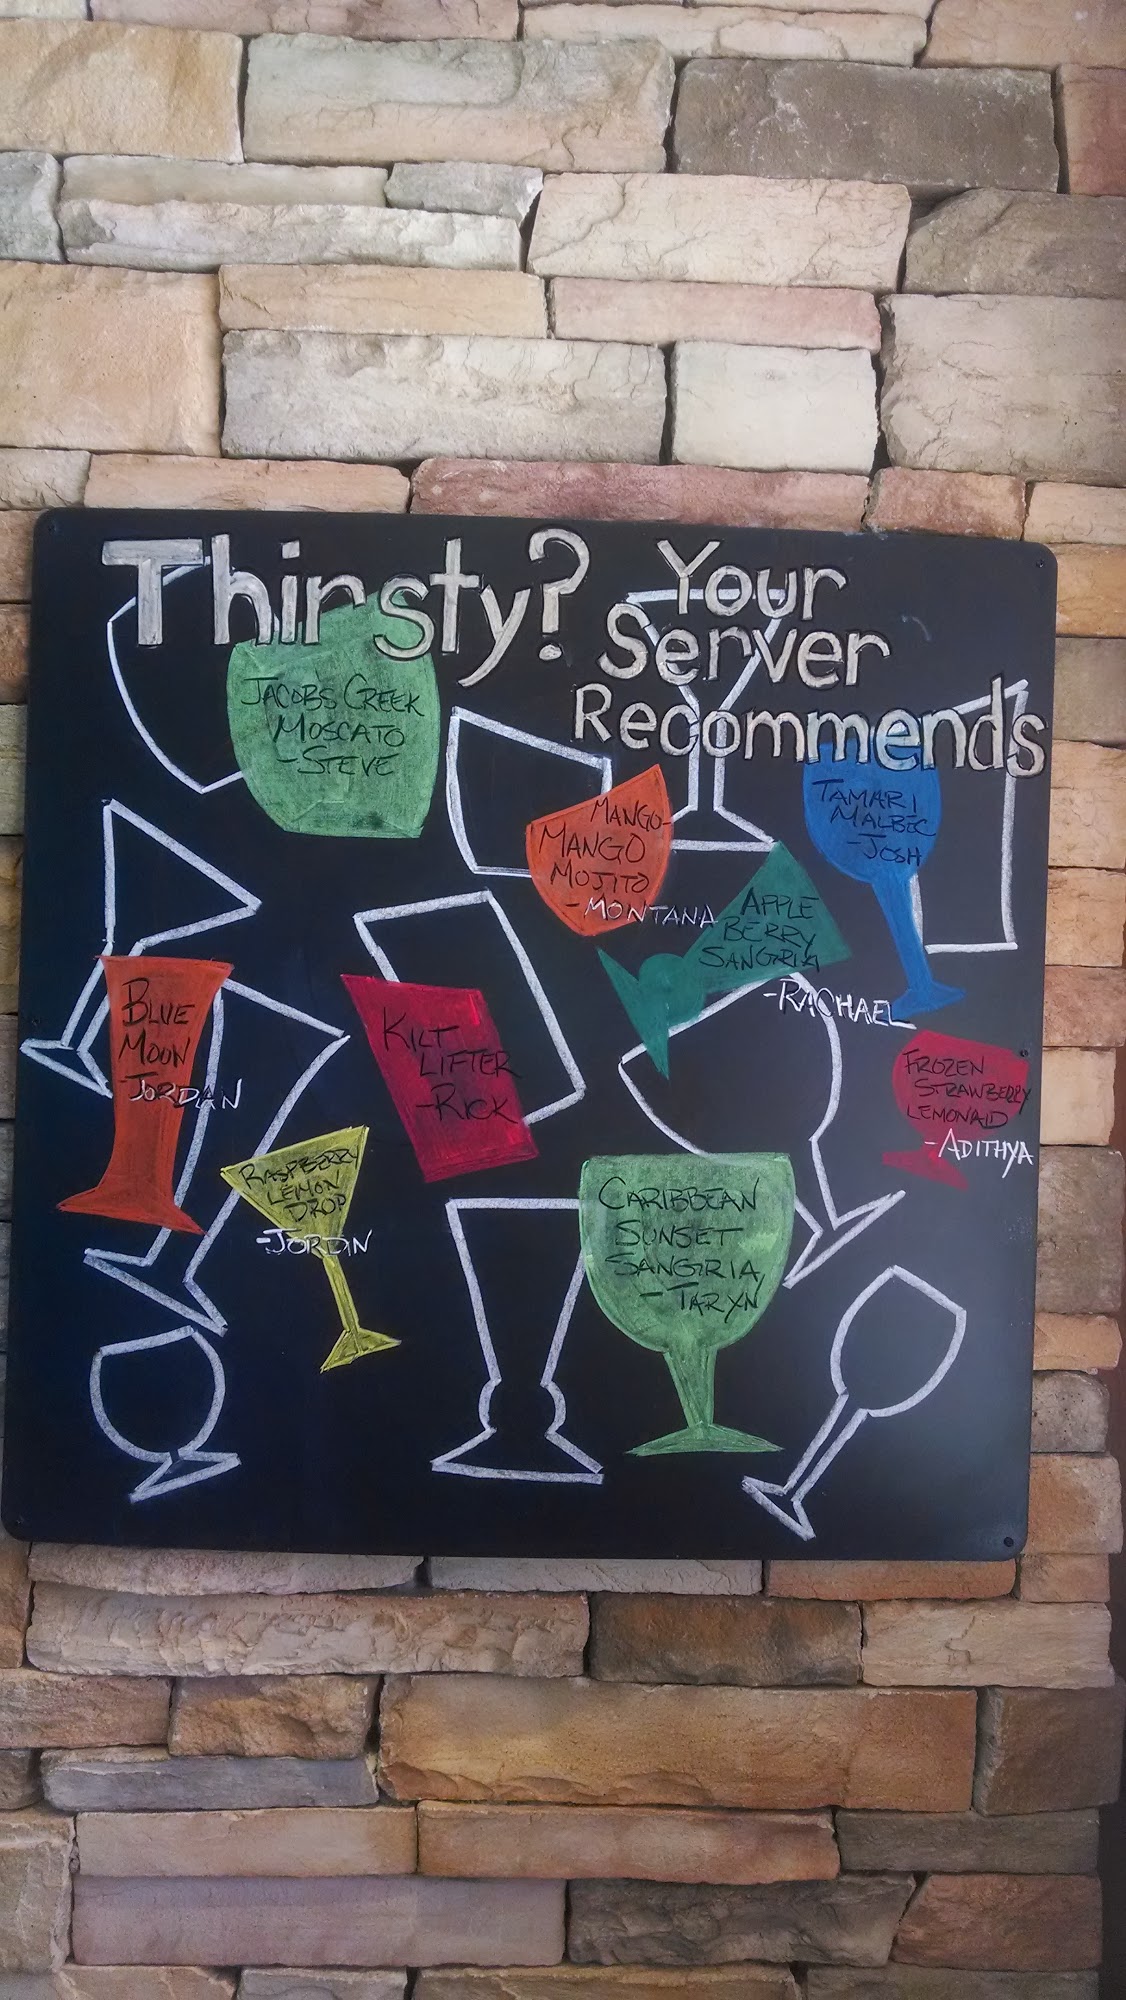 Thirsty?
Your
Server
Recommends
JACOBS CREEK
MOSCATO
-STEVE
MANGO-
MANGO
MOJITO
- MONTANA
TAMARI
MALBEC
-JOSH
APPLE
BERRY
SANGRIA
-RACHAEL
BLUE
MOON
-JORDAN
KILT
LIFTER
-RICK
FROZEN
STRAWBERRY
LEMONAID
-ADITHYA
RASPBERRY
LEMON
DROP
-JORDIN
CARIBBEAN
SUNSET
SANGRIA
- TARYN